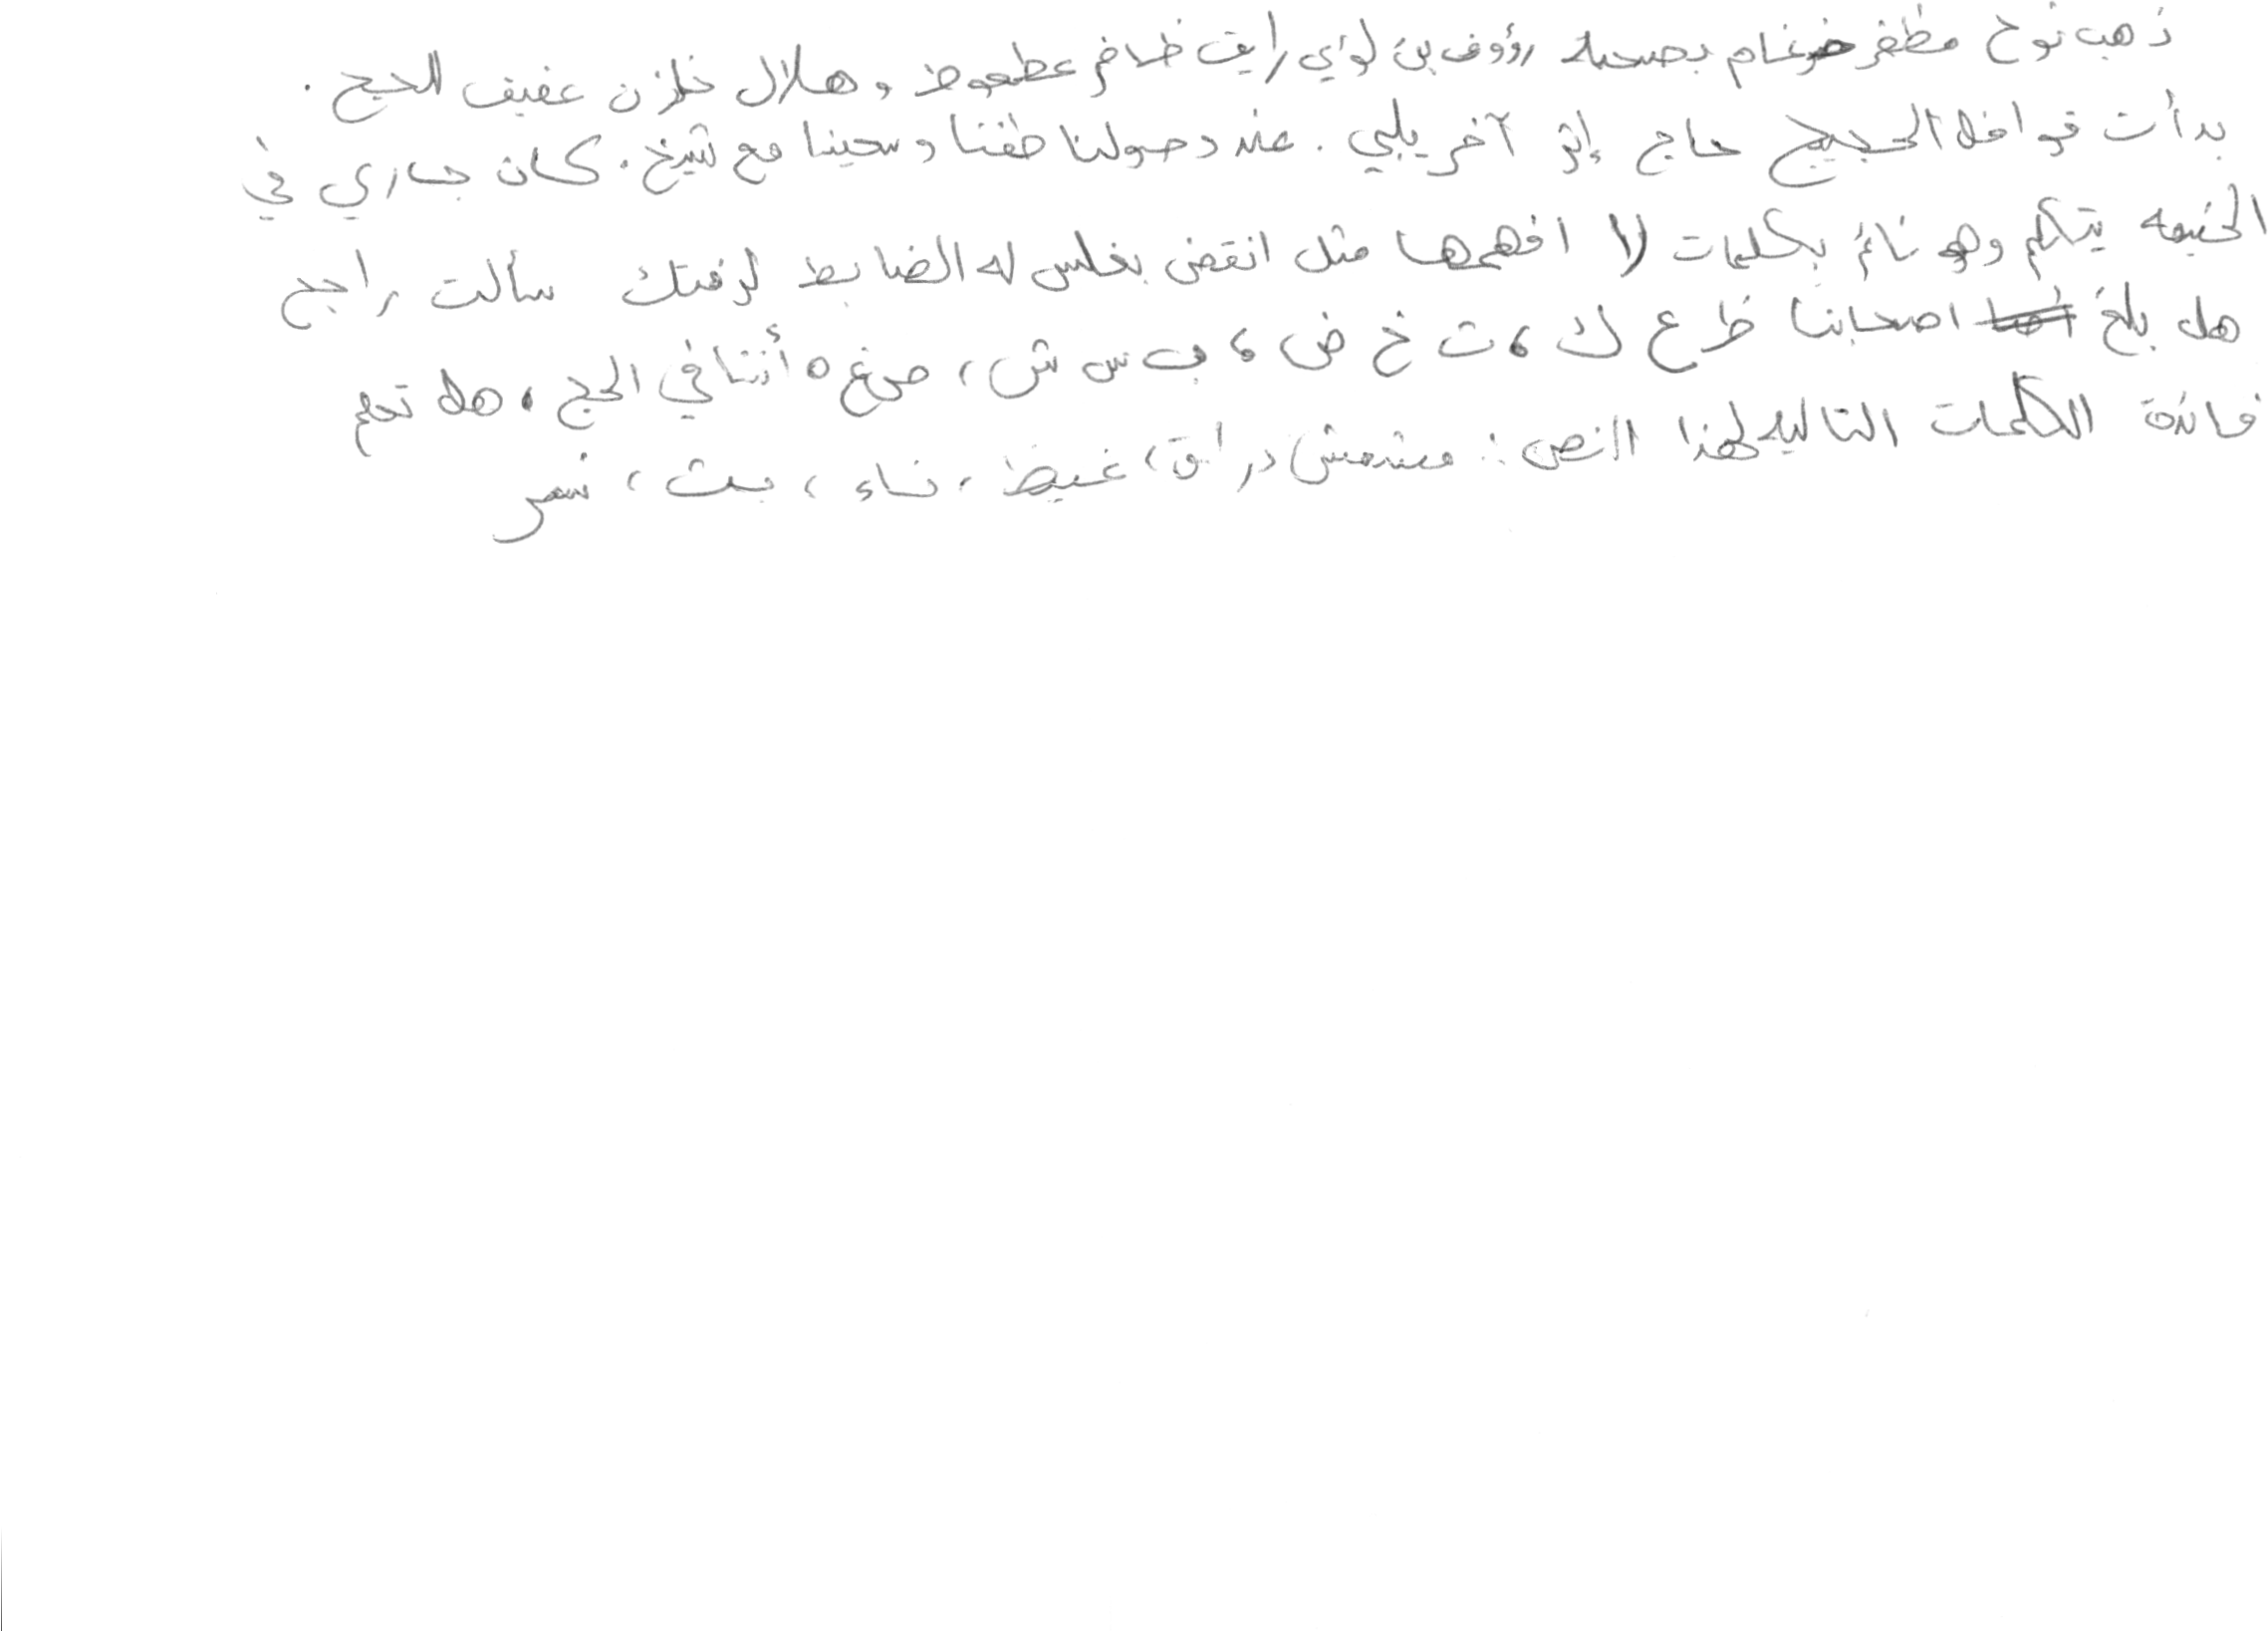 ذهب نوح مظفر ضرغام بصحبة رؤوف بن لؤي رايق ظافر عطعوط و هلال خازن عفيف للحج .
بدأت قوافل الحجيج حاج إثر آخر يلبي . عند وصولنا طفنا و سعينا مع شيخ . كان جاري في
الخيمه يتكلم وهو نائم بكلمات لا افهمها مثل انقض بغلس له الضابط لرفتك سألت راجح
هل بلغ اصحابنا ظ ع ك ، ث خ ض ، ب س ش ، ص غ ه أننا في الحج ، هل تعلم
فائدة الكلمات التاليه لهذا النص : مشمش دراق ، غيظ ، ناء ، بث ، نمر